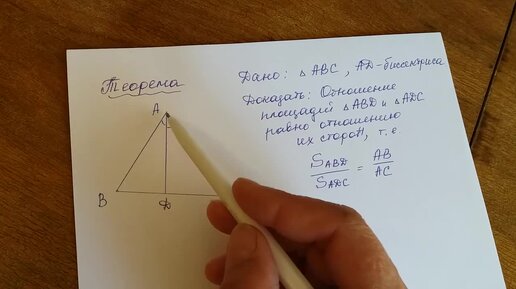 Теорема
Дано: △ABC, AD-биссектриса
Доказать: Отношение
площадей △ABD и △ADC
равно отношению
их сторон, т.е.
S_ABD / S_ADC = AB / AC
A
B
D